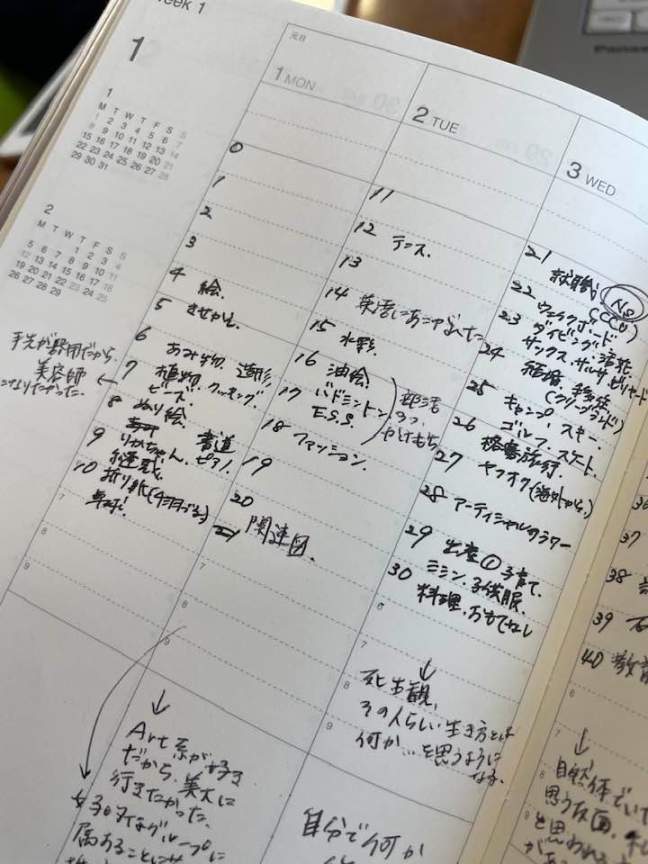 Week 1
12
1
M T W T F S S
1 2 3 4 5 6 7
8 9 10 11 12 13 14
15 16 17 18 19 20 21
22 23 24 25 26 27 28
29 30 31
2
M T W T F S S
1 2 3 4
5 6 7 8 9 10 11
12 13 14 15 16 17 18
19 20 21 22 23 24 25
26 27 28 29
手先が器用だから、
美容師
になりたかった。
元日
1 MON
0
1
2
3
4 絵、
5 きせかえ、
6 あみ物、造形、
7 植物、クッキング、
ビーズ、
8 ぬり絵、
9 りかちゃん、書道
ピアノ、
10 折り紙
↓
Art系が好き
だから、美大に
行きたかった。
女子のグループに
属することに
2 TUE
11
12 テニス、
13
14 英語にあこがれた
15 水彩、
16 油絵、
17 バドミントン
E.S.S.
部活
かけもち
18 ファッション、
19
20
21 関連図、
自分で何か
3 WED
21 就職 No
(CCU)
22 ウェイクボード
23 ダイビング、活花、
24 サックス、サルサ、ビリヤード
結婚、移住
25 キャンプ、スキー、
26 ゴルフ、スケート、
27 ヤフオク(海外から)
28 アーティシャルフラワー
29 出産① 子育て、
30 ミシン、子供服、
料理、おもてなし
↓
死生観、
その人らしい生き方とは
何か…を思うように
なる。
37
38
39
40 教育
↓
自然体でい
思う反面、
と思われ